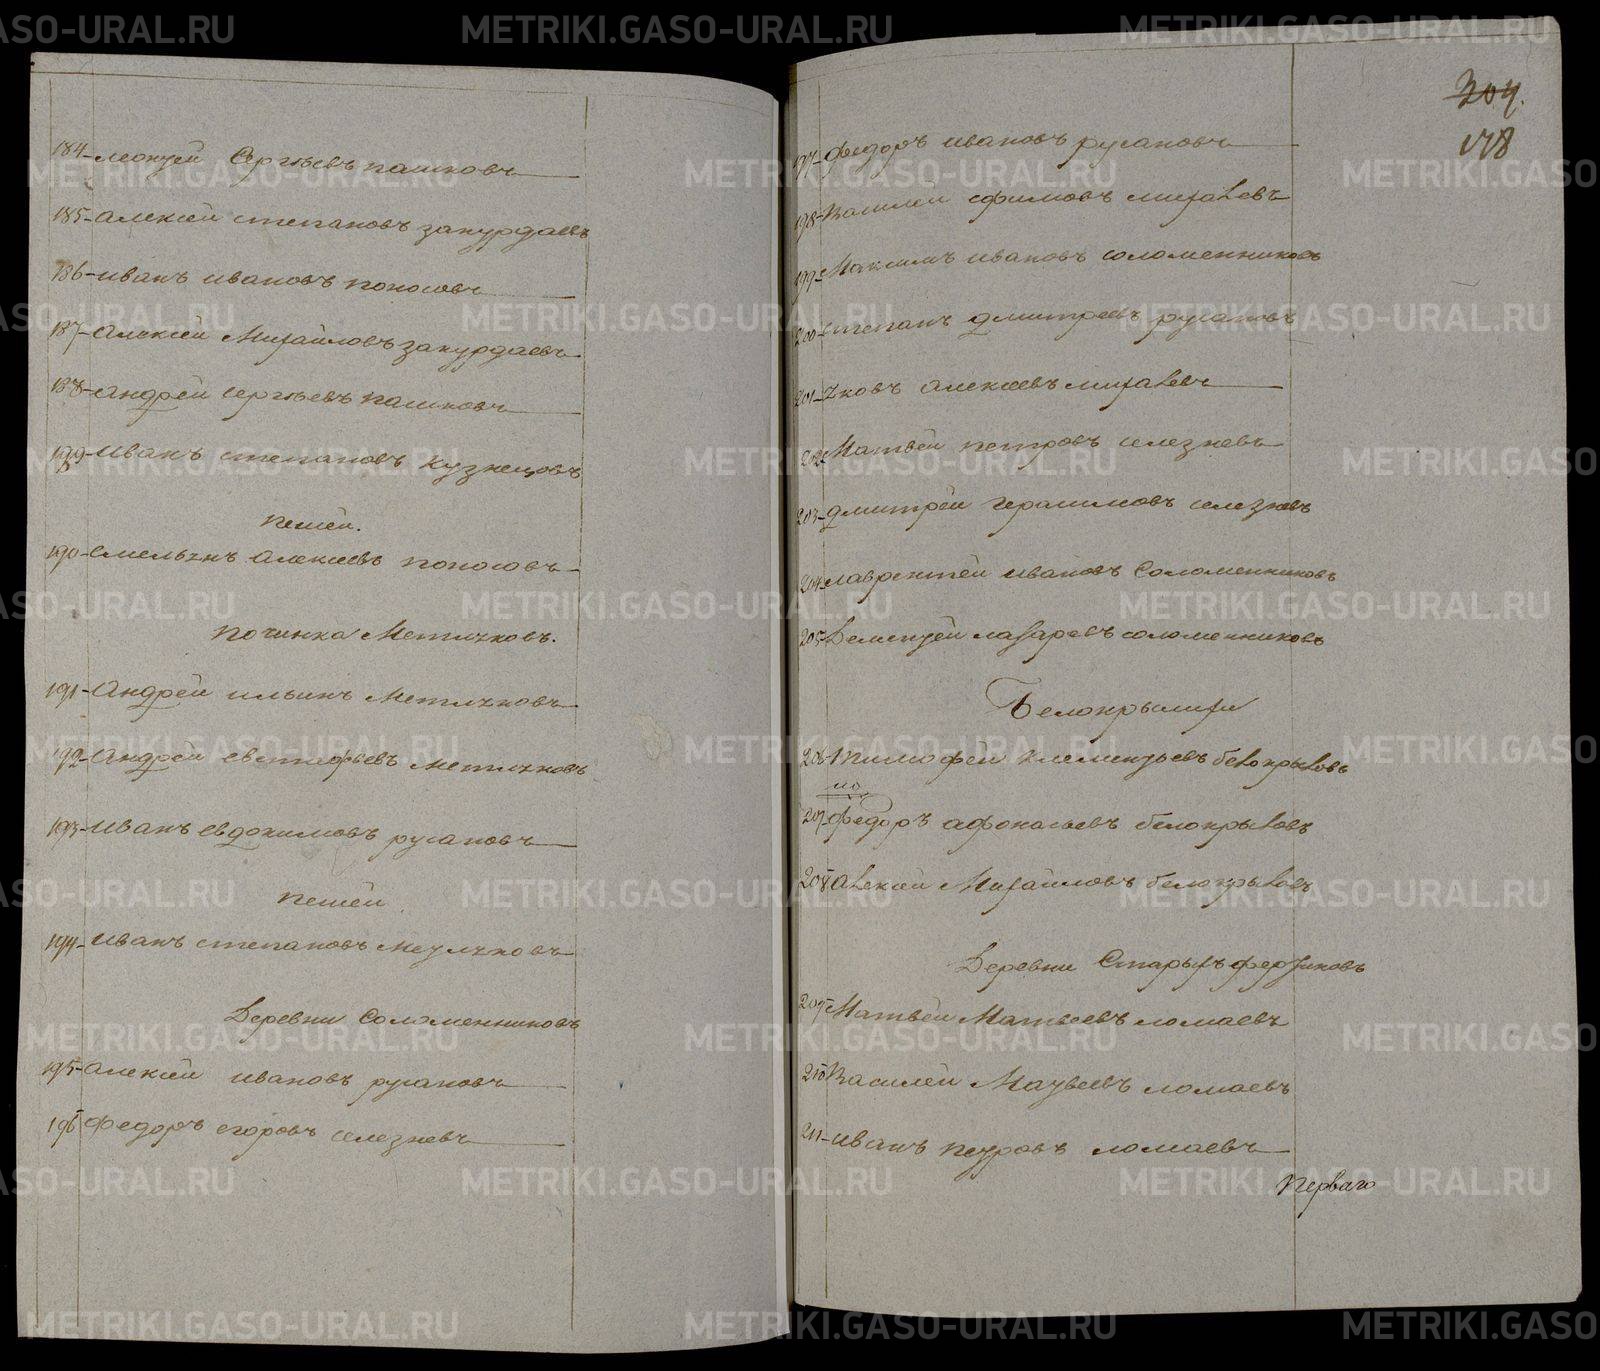 184 леонтей Сергѣевъ пашковъ
185 алексей степановъ закурдаевъ
186 иванъ ивановъ поносовъ
187 алексей Михайловъ закурдаевъ
188 андрей сергѣевъ пашковъ
189 иванъ степановъ кузнецовъ
пешей.
190 емельянъ алексеевъ поносовъ
починка Метляковъ.
191 андрей ильинъ Метляковъ
192 андрей евстафьевъ метляковъ
193 иванъ евдокимовъ русановъ
пешей
194 иванъ степановъ Метляковъ
Деревни Соломенниковъ
195 алексей ивановъ русановъ
196 федоръ егоровъ селезневъ
304.
178
197 федоръ ивановъ русановъ
198 Василей ефимовъ михалевъ
199 Максимъ ивановъ соломенниковъ
200 степанъ дмитреевъ русановъ
201 яковъ алексеевъ михалевъ
202 Матвей петровъ селезневъ
203 дмитрей герасимовъ селезневъ
204 лаврентей ивановъ Соломенниковъ
205 Дементей лазаревъ соломенниковъ
Белокрылихи
206 тимофей клементьевъ белокрыловъ
207 федоръ афонасьевъ белокрыловъ
208 алексей Михайловъ белокрыловъ
Деревни Старыхъ
209 Матвей Матвеевъ ломаевъ
210 Василей Матвеевъ ломаевъ
211 иванъ петровъ ломаевъ
перваго
METRIKI.GASO-URAL.RU